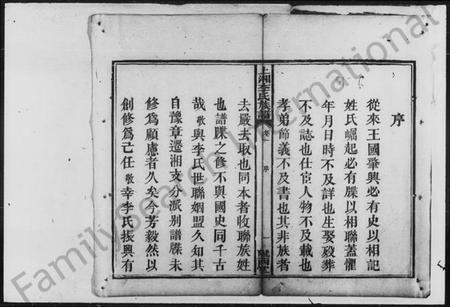 序
從來王國肇興必有史以相記
姓氏崛起必有牒以相聯蓋懼
年月日時不及詳也生娶歿葬
不及誌也仕宦人物不及載也
孝弟節義不及書也其非族者
上湘李氏族譜
序
去嚴去取也同本者收聯族姓
也譜牒之修不與國史同千古
哉敬與李氏世聯姻盟久知其
自豫章遷湘支分派別譜牒未
修為顧慮者久矣今芳毅然以
創修為己任敬幸李氏振興有
FamilySearch International